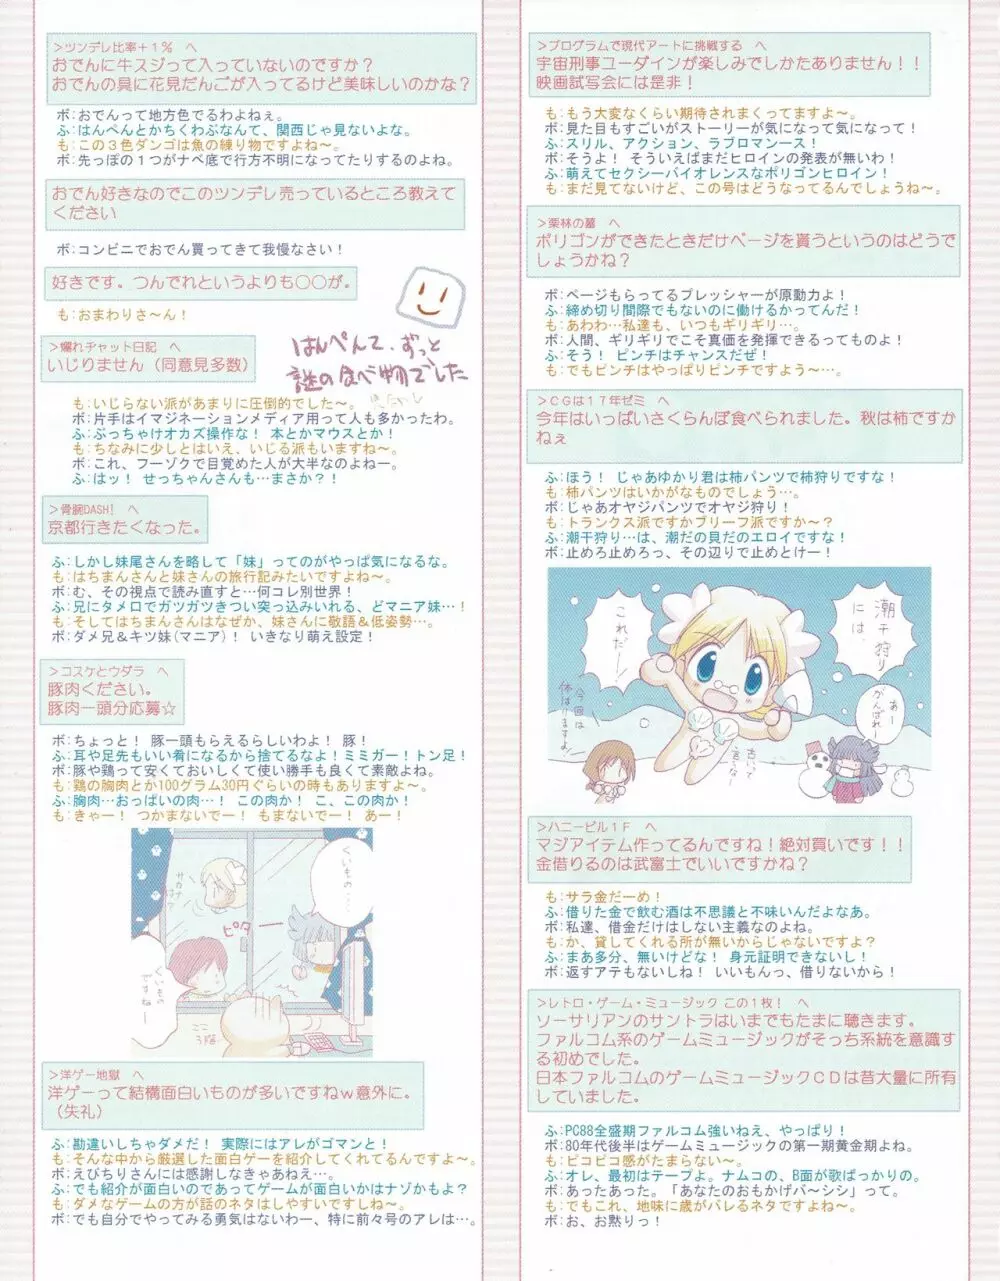 ＞ツンデレ比率＋１％　へ
おでんに牛スジって入っていないのですか？
おでんの具に花見だんごが入ってるけど美味しいのかな？
ボ：おでんって地方色でるわよねぇ。
ふ：はんぺんとかちくわぶなんて、関西じゃ見ないよな。
も：この３色ダンゴは魚の練り物ですよね～。
ボ：先っぽの１つがナベ底で行方不明になってたりするのよね。
おでん好きなのでこのツンデレ売っているところ教えて
ください
ボ：コンビニでおでん買ってきて我慢なさい！
好きです。つんでれというよりも○○が。
も：おまわりさ～ん！
はんぺんて、ずっと
謎の食べ物でした
＞爛れチャット日記　へ
いじりません（同意見多数）
も：いじらない派があまりに圧倒的でした～。
ボ：片手はイマジネーションメディア用って人も多かったわ。
ふ：ぶっちゃけオカズ操作な！ 本とかマウスとか！
も：ちなみに少しとはいえ、いじる派もいますね～。
ボ：これ、フーゾクで目覚めた人が大半なのよねー。
ふ：はッ！ せっちゃんさんも…まさか？！
＞骨腕DASH！　へ
京都行きたくなった。
ふ：しかし妹尾さんを略して「妹」ってのがやっぱ気になるな。
も：はちまんさんと妹さんの旅行記みたいですよね～。
ボ：む、その視点で読み直すと…何コレ別世界！
ふ：兄にタメ口でガツガツきつい突っ込みいれる、どマニア妹…！
も：そしてはちまんさんはなぜか、妹さんに敬語＆低姿勢…。
ボ：ダメ兄＆キツ妹(マニア)！ いきなり萌え設定！
＞コスケとウダラ　へ
豚肉ください。
豚肉一頭分応募☆
ボ：ちょっと！ 豚一頭もらえるらしいわよ！ 豚！
ふ：耳や足先もいい肴になるから捨てるなよ！ミミガー！トン足！
ボ：豚や鶏って安くておいしくて使い勝手も良くて素敵よね。
も：鶏の胸肉とか100グラム30円ぐらいの時もありますよ～。
ふ：胸肉…おっぱいの肉…！ この肉か！ こ、この肉か！
も：きゃー！ つかまないでー！ もまないでー！ あー！
くいもの…
サカナは？
ピタ
くいもの
ですね―
ここ
3階
＞洋ゲー地獄　へ
洋ゲーって結構面白いものが多いですねｗ意外に。
（失礼）
ふ：勘違いしちゃダメだ！ 実際にはアレがゴマンと！
も：そんな中から厳選した面白ゲーを紹介してくれてるんですよ～。
ボ：えびちりさんには感謝しなきゃあねえ…。
ふ：でも紹介が面白いのであってゲームが面白いかはナゾかもよ？
も：ダメなゲームの方が話のネタはしやすいですしね～。
ボ：でも自分でやってみる勇気はないわー、特に前々号のアレは…。
＞プログラムで現代アートに挑戦する　へ
宇宙刑事ユーダインが楽しみでしかたありません！！
映画試写会には是非！
も：もう大変なくらい期待されまくってますよ～。
ボ：見た目もすごいがストーリーが気になって気になって！
ふ：スリル、アクション、ラブロマンース！
ボ：そうよ！ そういえばまだヒロインの発表が無いわ！
ふ：萌えてセクシーバイオレンスなポリゴンヒロイン！
も：まだ見てないけど、この号はどうなってるんでしょうね～。
＞栗林の墓　へ
ポリゴンができたときだけページを貰うというのはどうで
しょうかね？
ボ：ページもらってるプレッシャーが原動力よ！
ふ：締め切り間際でもないのに働けるかってんだ！
も：あわわ…私達も、いつもギリギリ…。
ボ：人間、ギリギリでこそ真価を発揮できるってものよ！
ふ：そう！ ピンチはチャンスだぜ！
も：でもピンチはやっぱりピンチですよう～…。
＞ＣＧは１７年ゼミ　へ
今年はいっぱいさくらんぼ食べられました。秋は柿ですか
ねぇ
ふ：ほう！ じゃあゆかり君は柿パンツで柿狩りですな！
も：柿パンツはいかがなものでしょう…。
ボ：じゃあオヤジパンツでオヤジ狩り！
も：トランクス派ですかブリーフ派ですか～？
ふ：潮干狩り…は、潮だの貝だのエロイですな！
ボ：止めろ止めろっ、その辺りで止めとけー！
潮干狩り
には、
これだー！
あー
がんばれー
今回は
体はりますよ
古いですなー
＞ハニービル１Ｆ　へ
マジアイテム作ってるんですね！絶対買いです！！
金借りるのは武富士でいいですかね？
も：サラ金だーめ！
ふ：借りた金で飲む酒は不思議と不味いんだよなあ。
ボ：私達、借金だけはしない主義なのよね。
も：か、貸してくれる所が無いからじゃないですよ？
ふ：まあ多分、無いけどな！ 身元証明できないし！
ボ：返すアテもないしね！ いいもんっ、借りないから！
＞レトロ・ゲーム・ミュージック この１枚！　へ
ソーサリアンのサントラはいまでもたまに聴きます。
ファルコム系のゲームミュージックがそっち系統を意識す
る初めでした。
日本ファルコムのゲームミュージックＣＤは昔大量に所有
していました。
ふ：PC88全盛期ファルコム強いねえ、やっぱり！
ボ：80年代後半はゲームミュージックの第一期黄金期よね。
も：ピコピコ感がたまらない～。
ふ：オレ、最初はテープよ。ナムコの、B面が歌ばっかりの。
ボ：あったあった。「あなたのおもかげバ～シシ」って。
も：でもこれ、地味に歳がバレるネタですよね～。
ボ：お、お黙りっ！